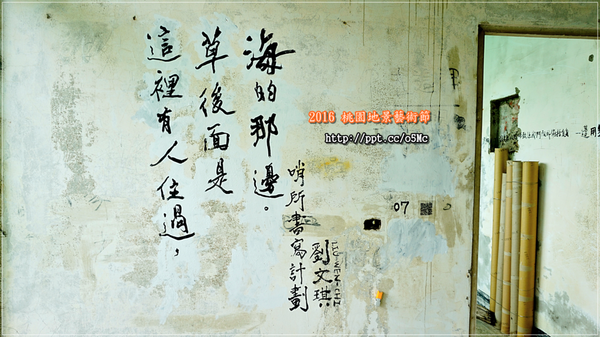 這裡有人住過，
草後面是
海的那邊。
哨所書寫計劃
劉文琪
LIU WEN-CHI
2016 桃園地景藝術節
http://ppt.cc/o5Mc
07